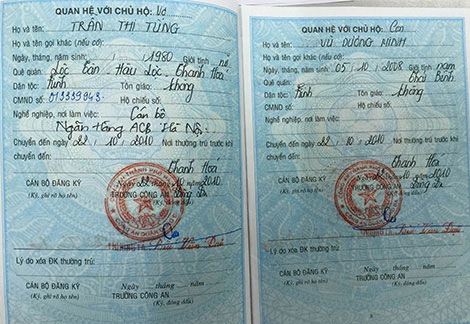 QUAN HỆ VỚI CHỦ HỘ: Vợ
Họ và tên: TRẦN THỊ TÙNG
Họ và tên gọi khác (nếu có):
Ngày, tháng, năm sinh: / / 1980 Giới tính: nữ
Quê quán: Lộc Tân - Hậu Lộc - Thanh Hoá
Dân tộc: Kinh Tôn giáo: không
CMND số: 013339943 Hộ chiếu số:
Nghề nghiệp, nơi làm việc: Cán bộ
Ngân Hàng ACB Hà Nội
Chuyển đến ngày 22 . 10 . 2010 Nơi thường trú trước khi
chuyển đến:
Thanh Hoá
Ngày 22 tháng 10 năm 2010
CÁN BỘ ĐĂNG KÝ TRƯỞNG CÔNG AN
(Ký, ghi rõ họ tên) (Ký, đóng dấu)
Lý do xóa ĐK thường trú:
Ngày tháng năm
CÁN BỘ ĐĂNG KÝ TRƯỞNG CÔNG AN
(Ký, ghi rõ họ tên) (Ký, đóng dấu)
QUAN HỆ VỚI CHỦ HỘ: Con
Họ và tên: VŨ DƯƠNG MINH
Họ và tên gọi khác (nếu có):
Ngày, tháng, năm sinh: 05 / 10 / 2008 Giới tính: nam
Quê quán: Thái Bình
Dân tộc: Kinh Tôn giáo: không
CMND số: Hộ chiếu số:
Nghề nghiệp, nơi làm việc:
Chuyển đến ngày 22 . 10 . 2010 Nơi thường trú trước khi
chuyển đến:
Thanh Hoá
Ngày 22 tháng 10 năm 2010
CÁN BỘ ĐĂNG KÝ TRƯỞNG CÔNG AN
(Ký, ghi rõ họ tên) (Ký, đóng dấu)
Lý do xóa ĐK thường trú:
Ngày tháng năm
CÁN BỘ ĐĂNG KÝ TRƯỞNG CÔNG AN
(Ký, ghi rõ họ tên) (Ký, đóng dấu)